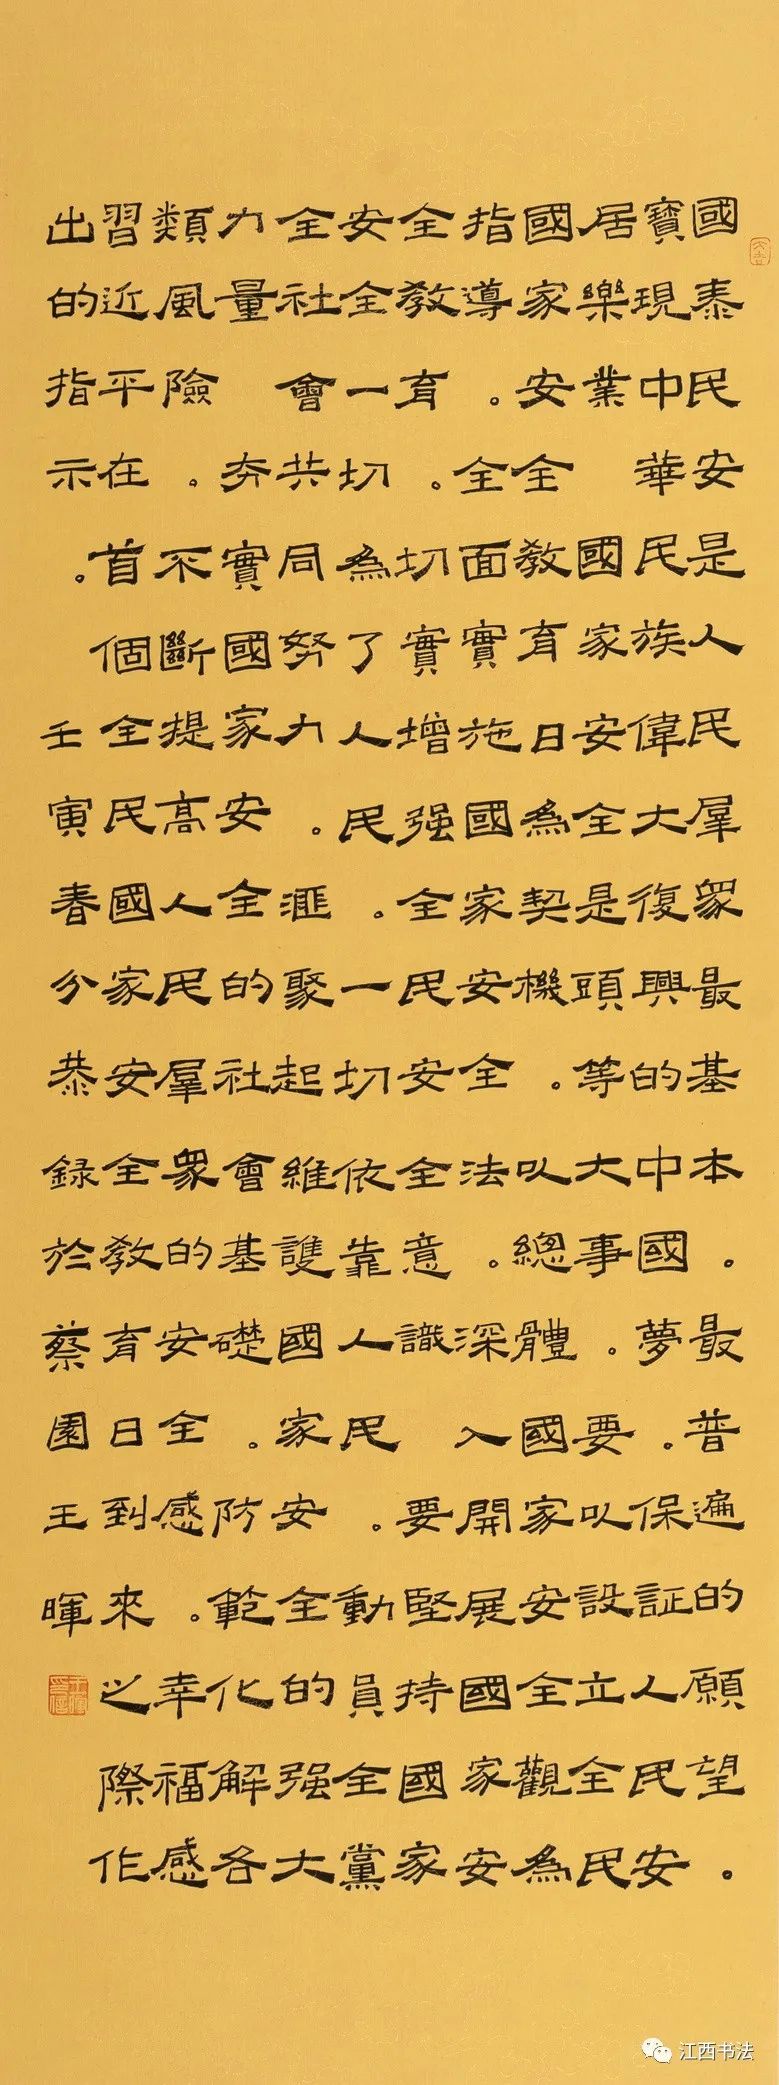 國泰民安是人民羣眾最基本。最普遍的願望。
實現中華民族偉大復興的中國夢。保証人民安
居樂業國家安全是頭等大事。要以設立全民
國家安全教育日為契機。以總體國家安全觀為
指導。全面實施國家安全法。深入開展國家安
全教育。切實增强全民安全意識要堅持國家
安全一切為了人民。一切依靠人民。動員全黨
全社會共同努力。滙聚起維護國家安全的强大
力量。夯實國家安全的社會基礎。防範化解各
類風險。不斷提高人民羣眾的安全感。幸福感
習近平在首個全民國家安全教育日到來之際作
出的指示。壬寅春分恭錄於蔡園王暉
江西书法